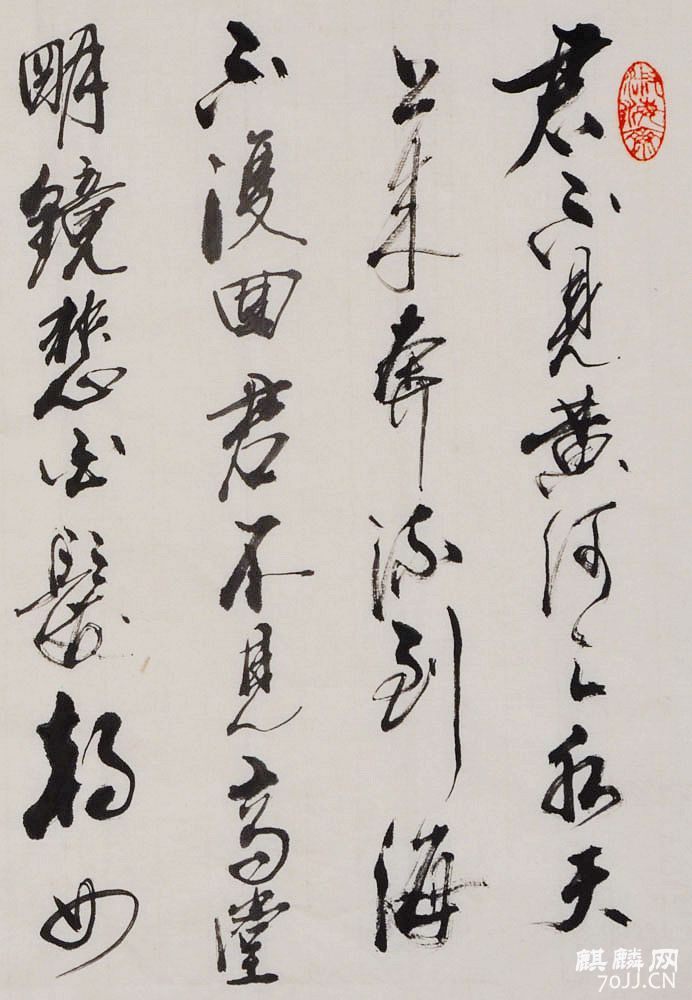 君不见黄河之水天
上来奔流到海
不復回君不见高堂
明镜悲白髮朝如
麒麟网
70JJ.CN